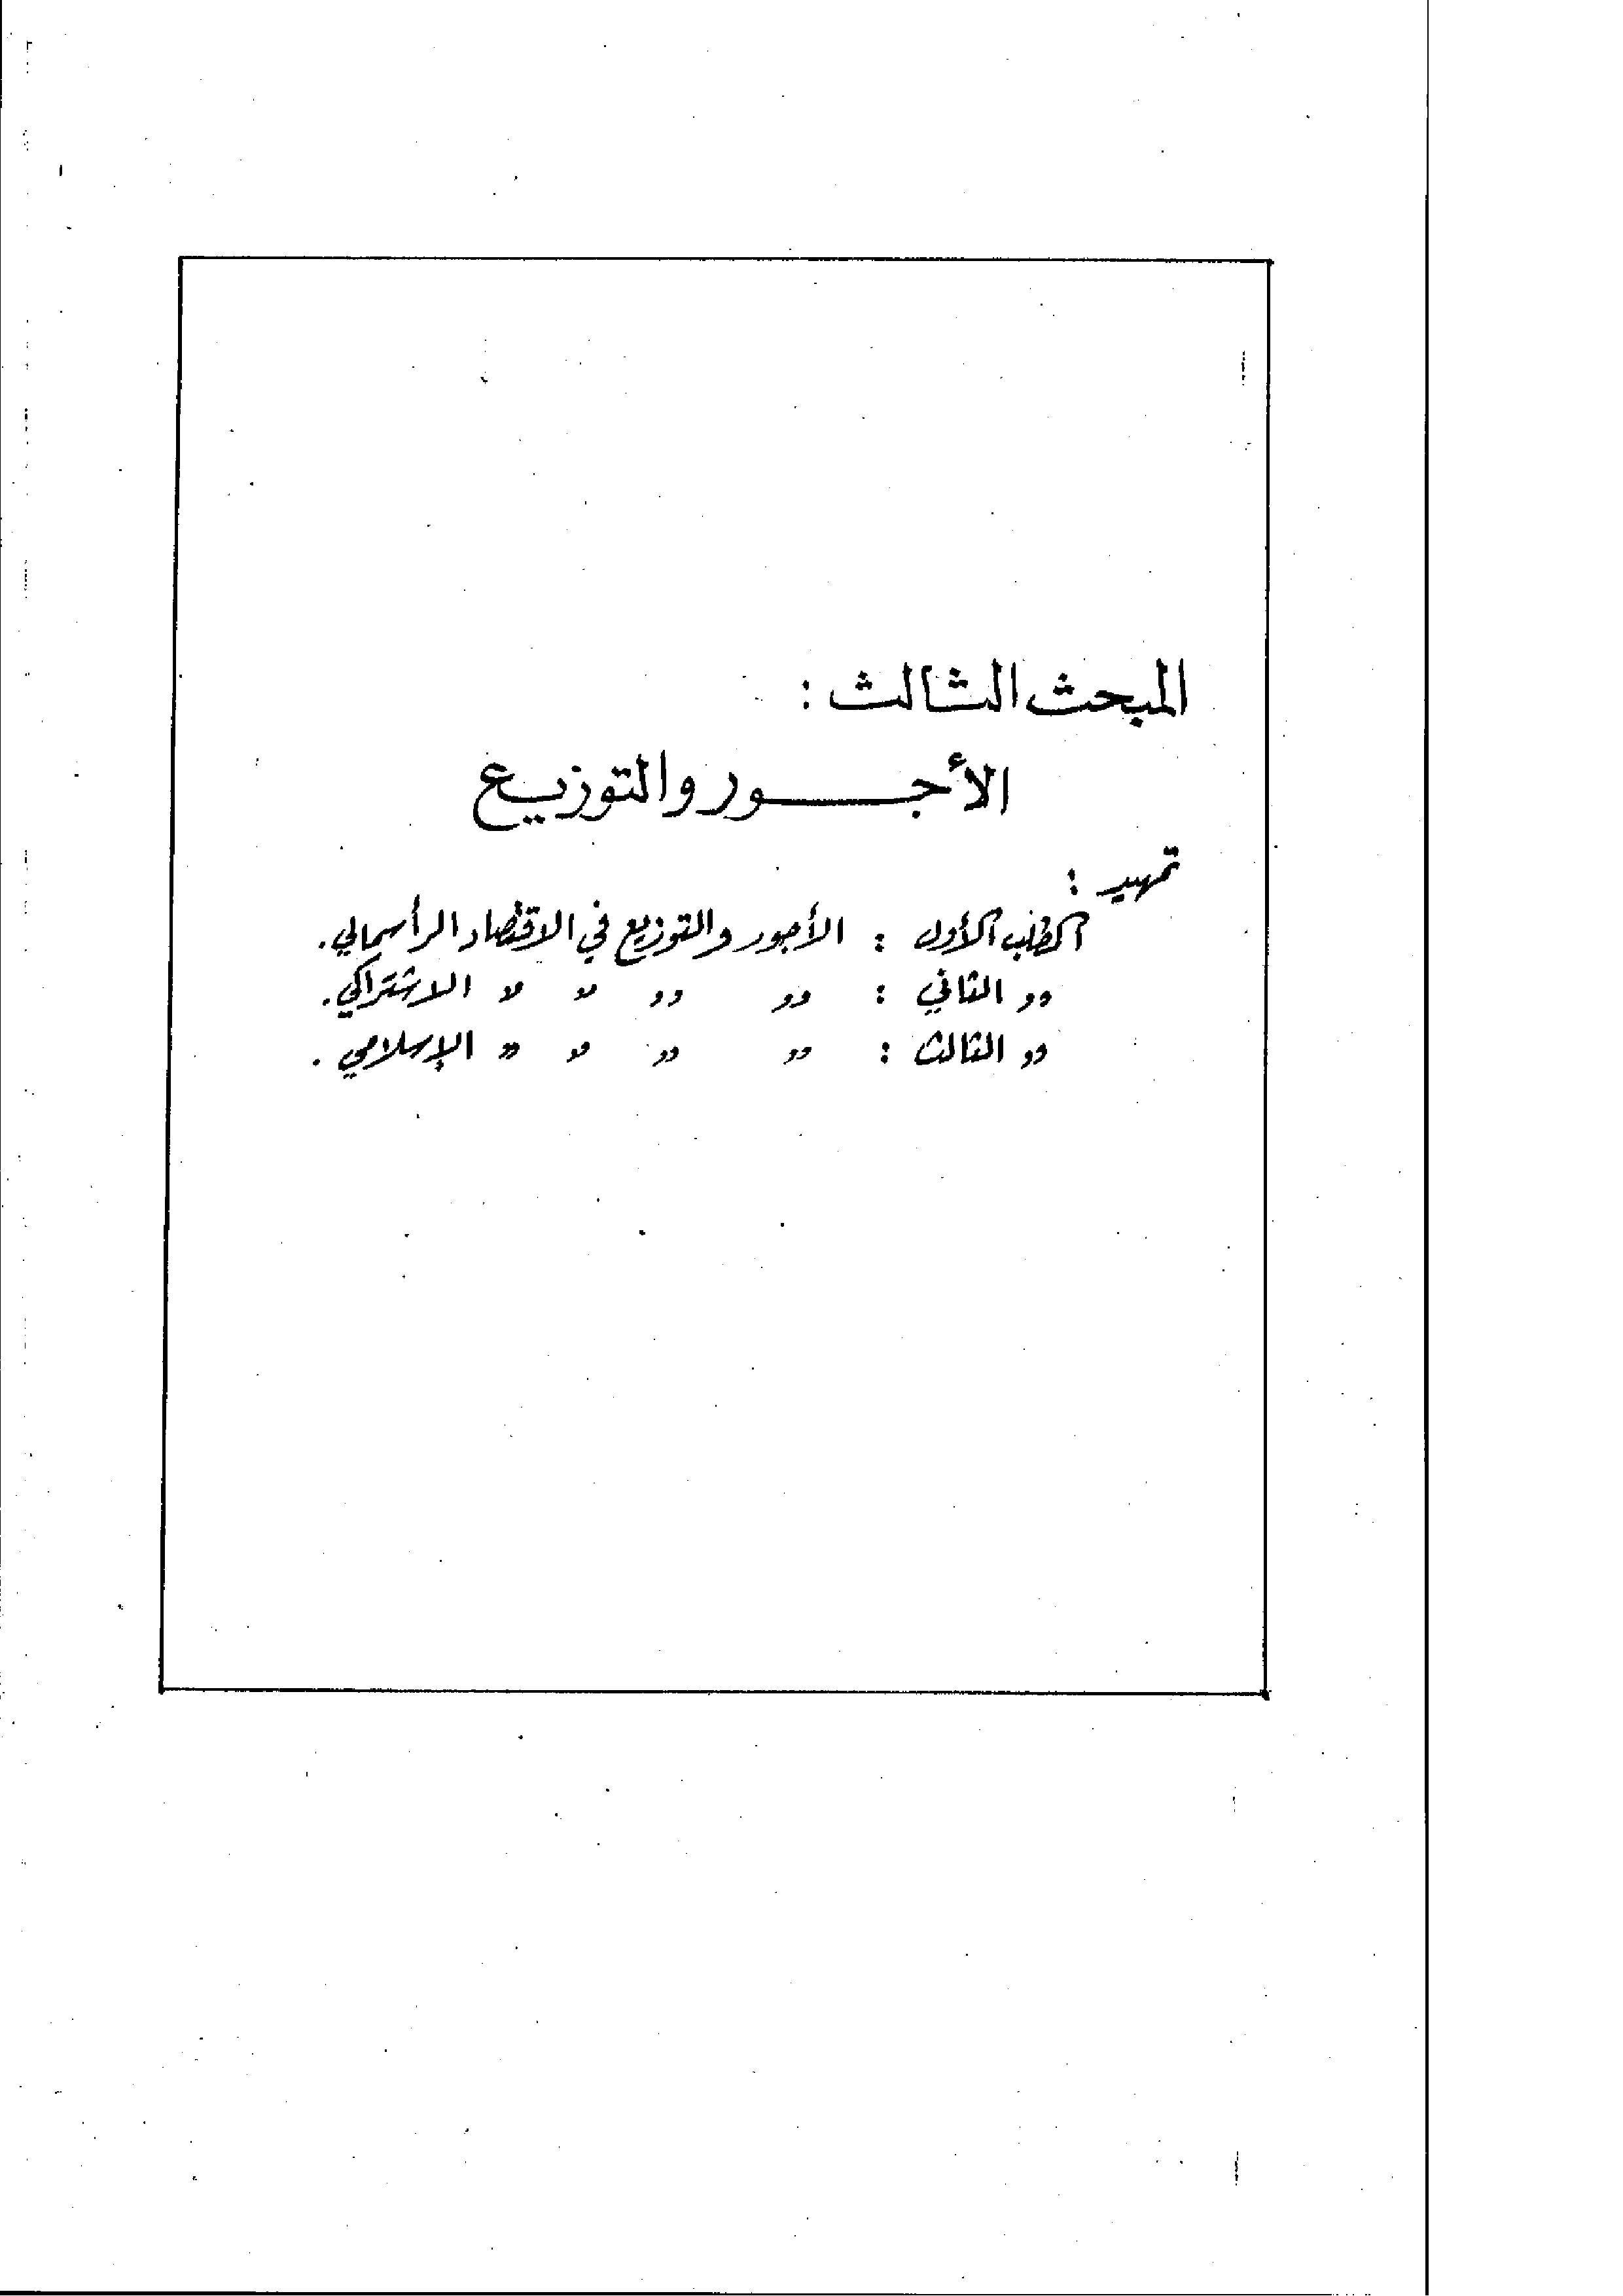 المبحث الثالث :
الأجور والتوزيع
تمهيد :
المطلب الأول : الأجور والتوزيع في الاقتصاد الرأسمالي.
״ الثاني : ״ ״ ״ ״ الاشتراكي.
״ الثالث : ״ ״ ״ ״ الإسلامي .